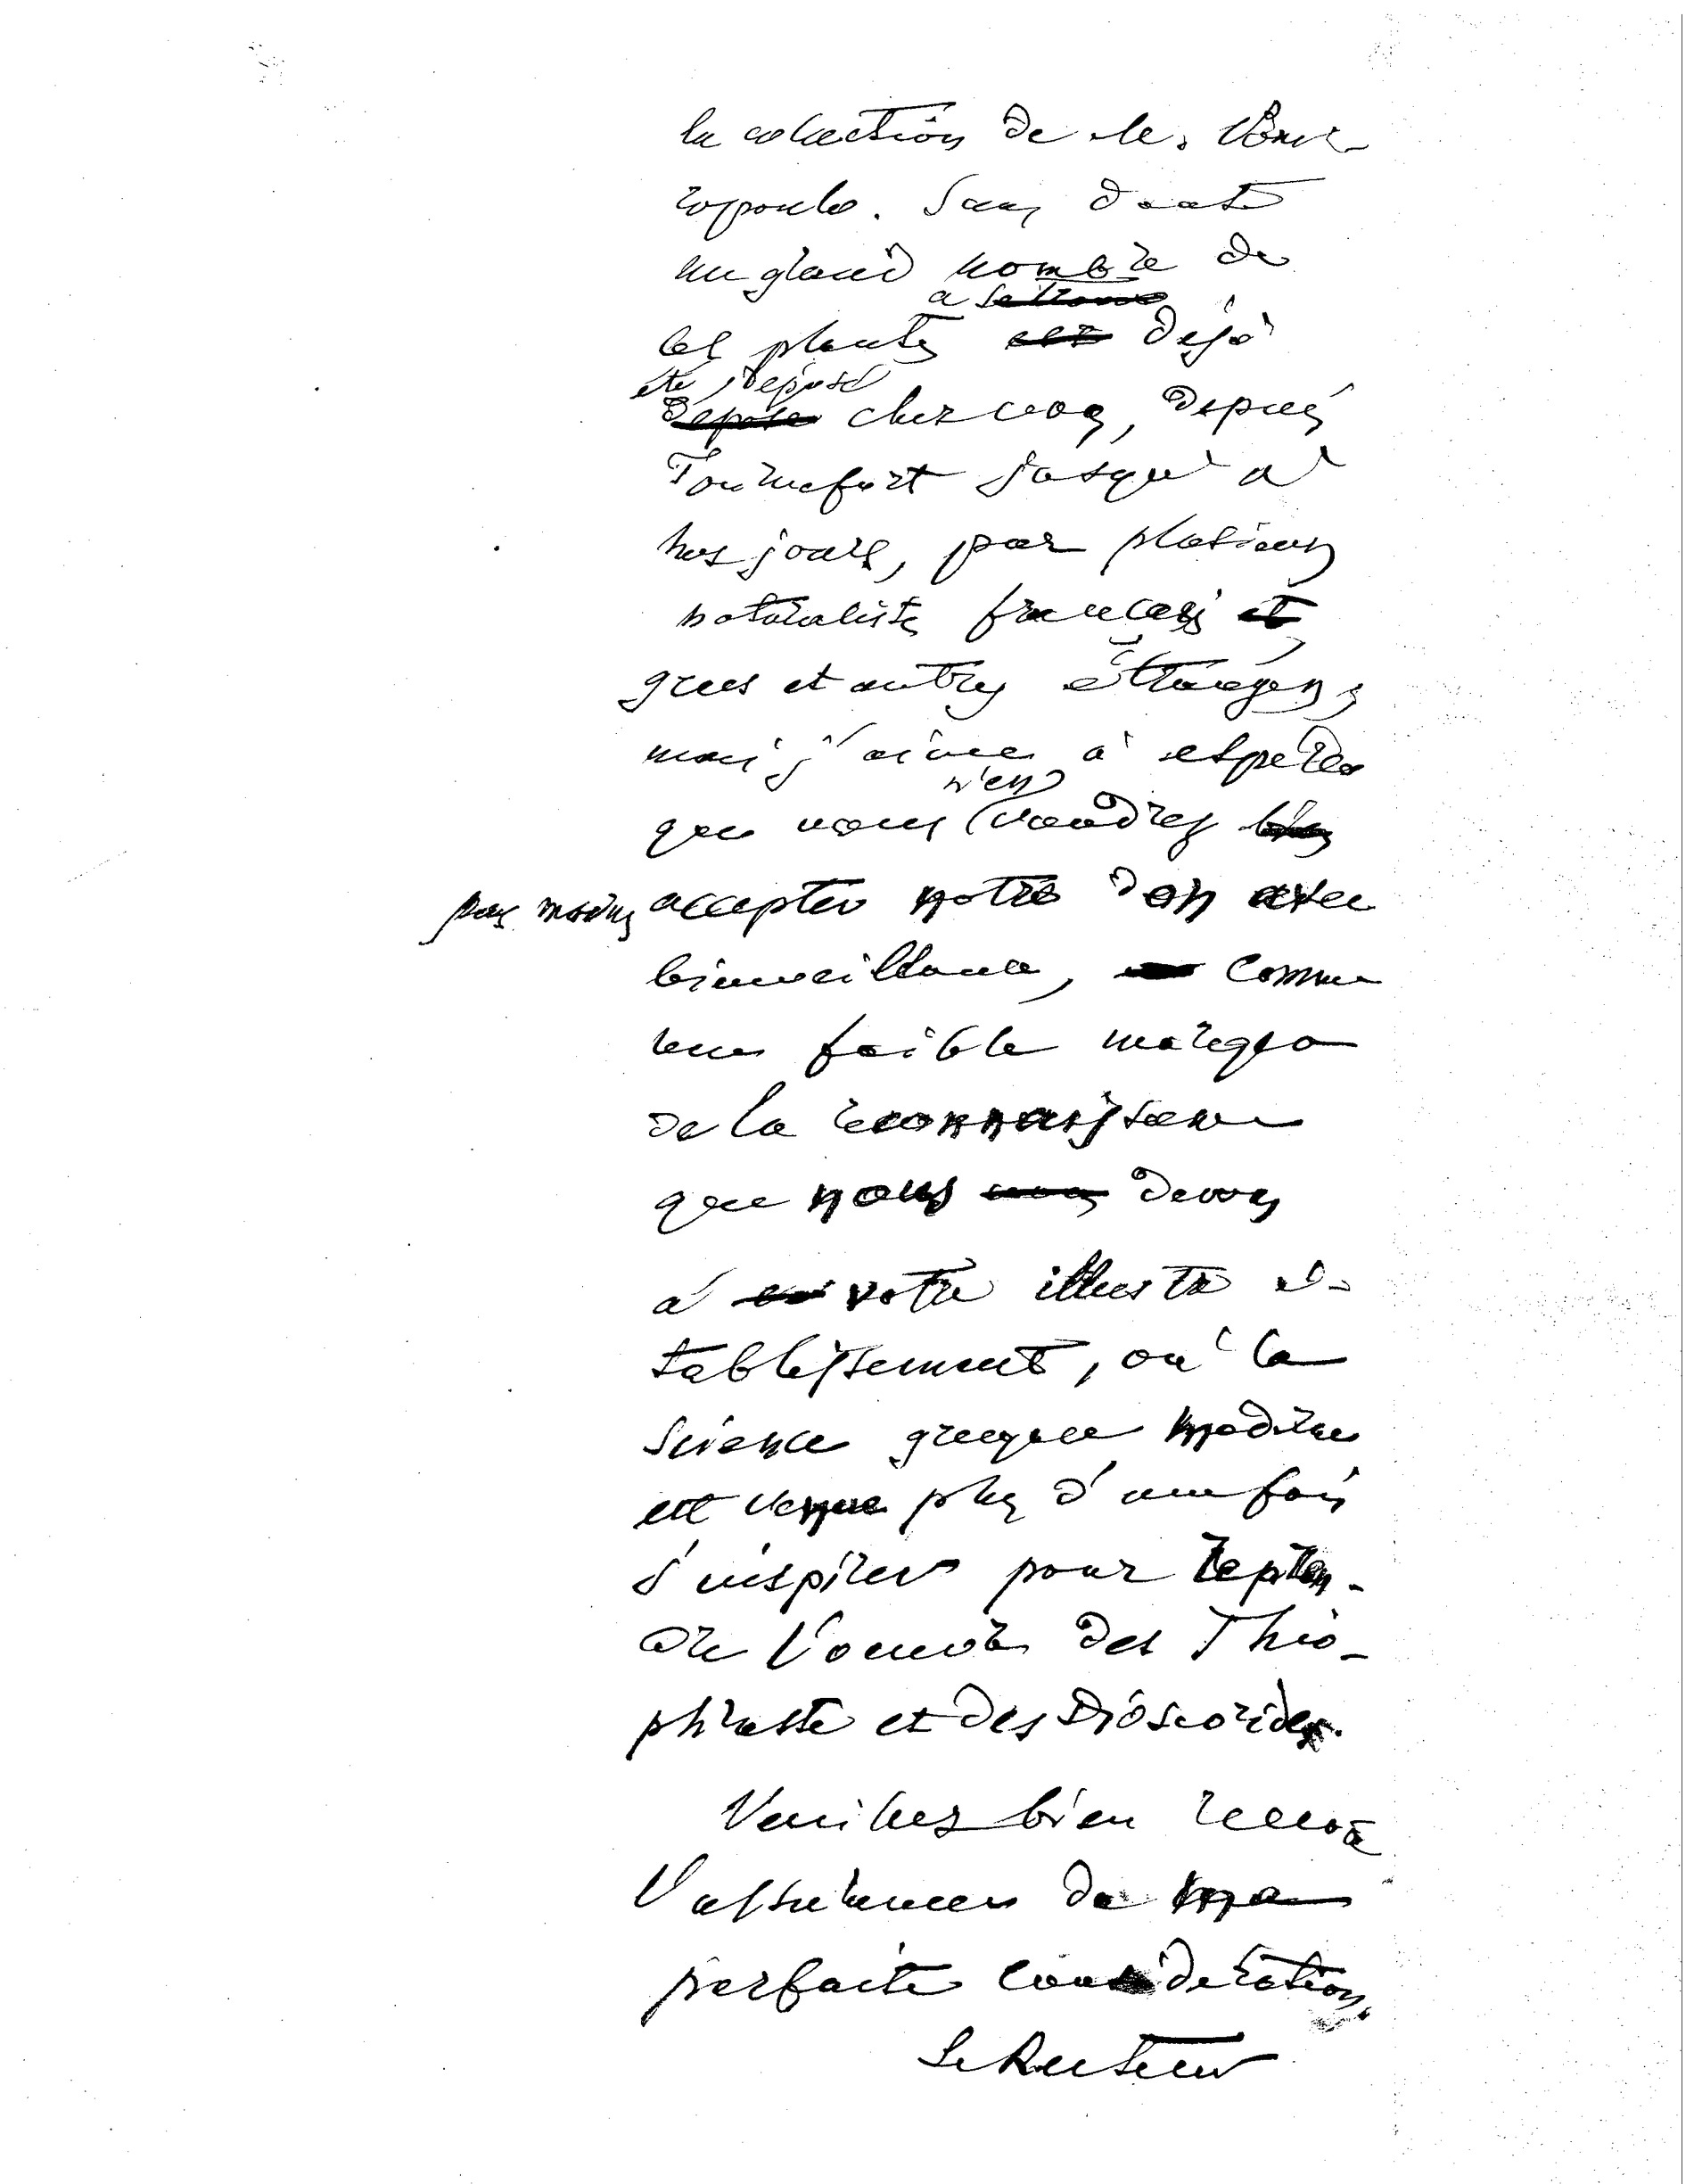 la collection de M.
ropoulo. Sans doute
un grand nombre de
a se trouve
ces plantes est déjà
été déposé
déposé chez vous, depuis
Tournefort jusqu'à
nos jours, par plusieurs
naturalistes français et
grecs et autres étrangers,
mais j'aime à espérer
n'en
que vous voudrez bien
pas moins accepter notre don avec
bienveillance, comme
une faible marque
de la reconnaissance
que nous vous devons
à votre illustre é-
tablissement, où la
science grecque moderne
est venue plus d'une fois
s'inspirer pour
dre l'oeuvre des Théo-
phraste et des Dioscorides.
Veuillez bien recevoir
l'assurance de ma
parfaite considération.
Le Recteur